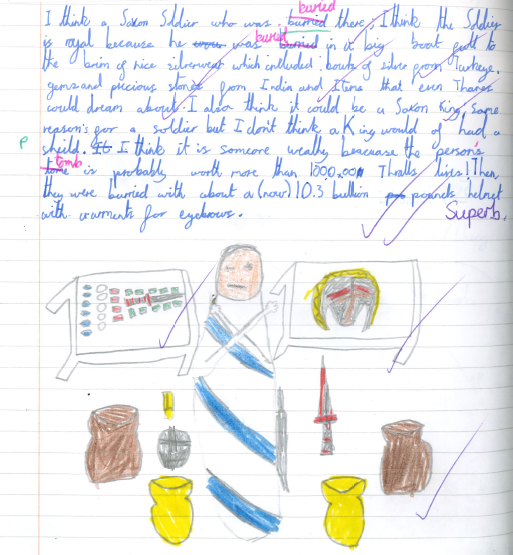 buried
I think a Saxon Soldier who was burried there, I think the Soldiey
buried
is royal because he was burried in it big boat full to
the brim of nice silverwear which included: bowls of silver from Turkeye,
gems and precious stones from India and items that even Thanes
could dream about. I also think it could be a Saxon King, same
reason's for a soldier but I don't think a King would of had a
P
sheild. It I think it is someone weally beacuase the person's
tomb
tome is probably worth more than 1000,000 Thralls lives! Then
they were burried with about a (now) 10.3 bullion pounds helmet
with for eyebrows.
Superb.